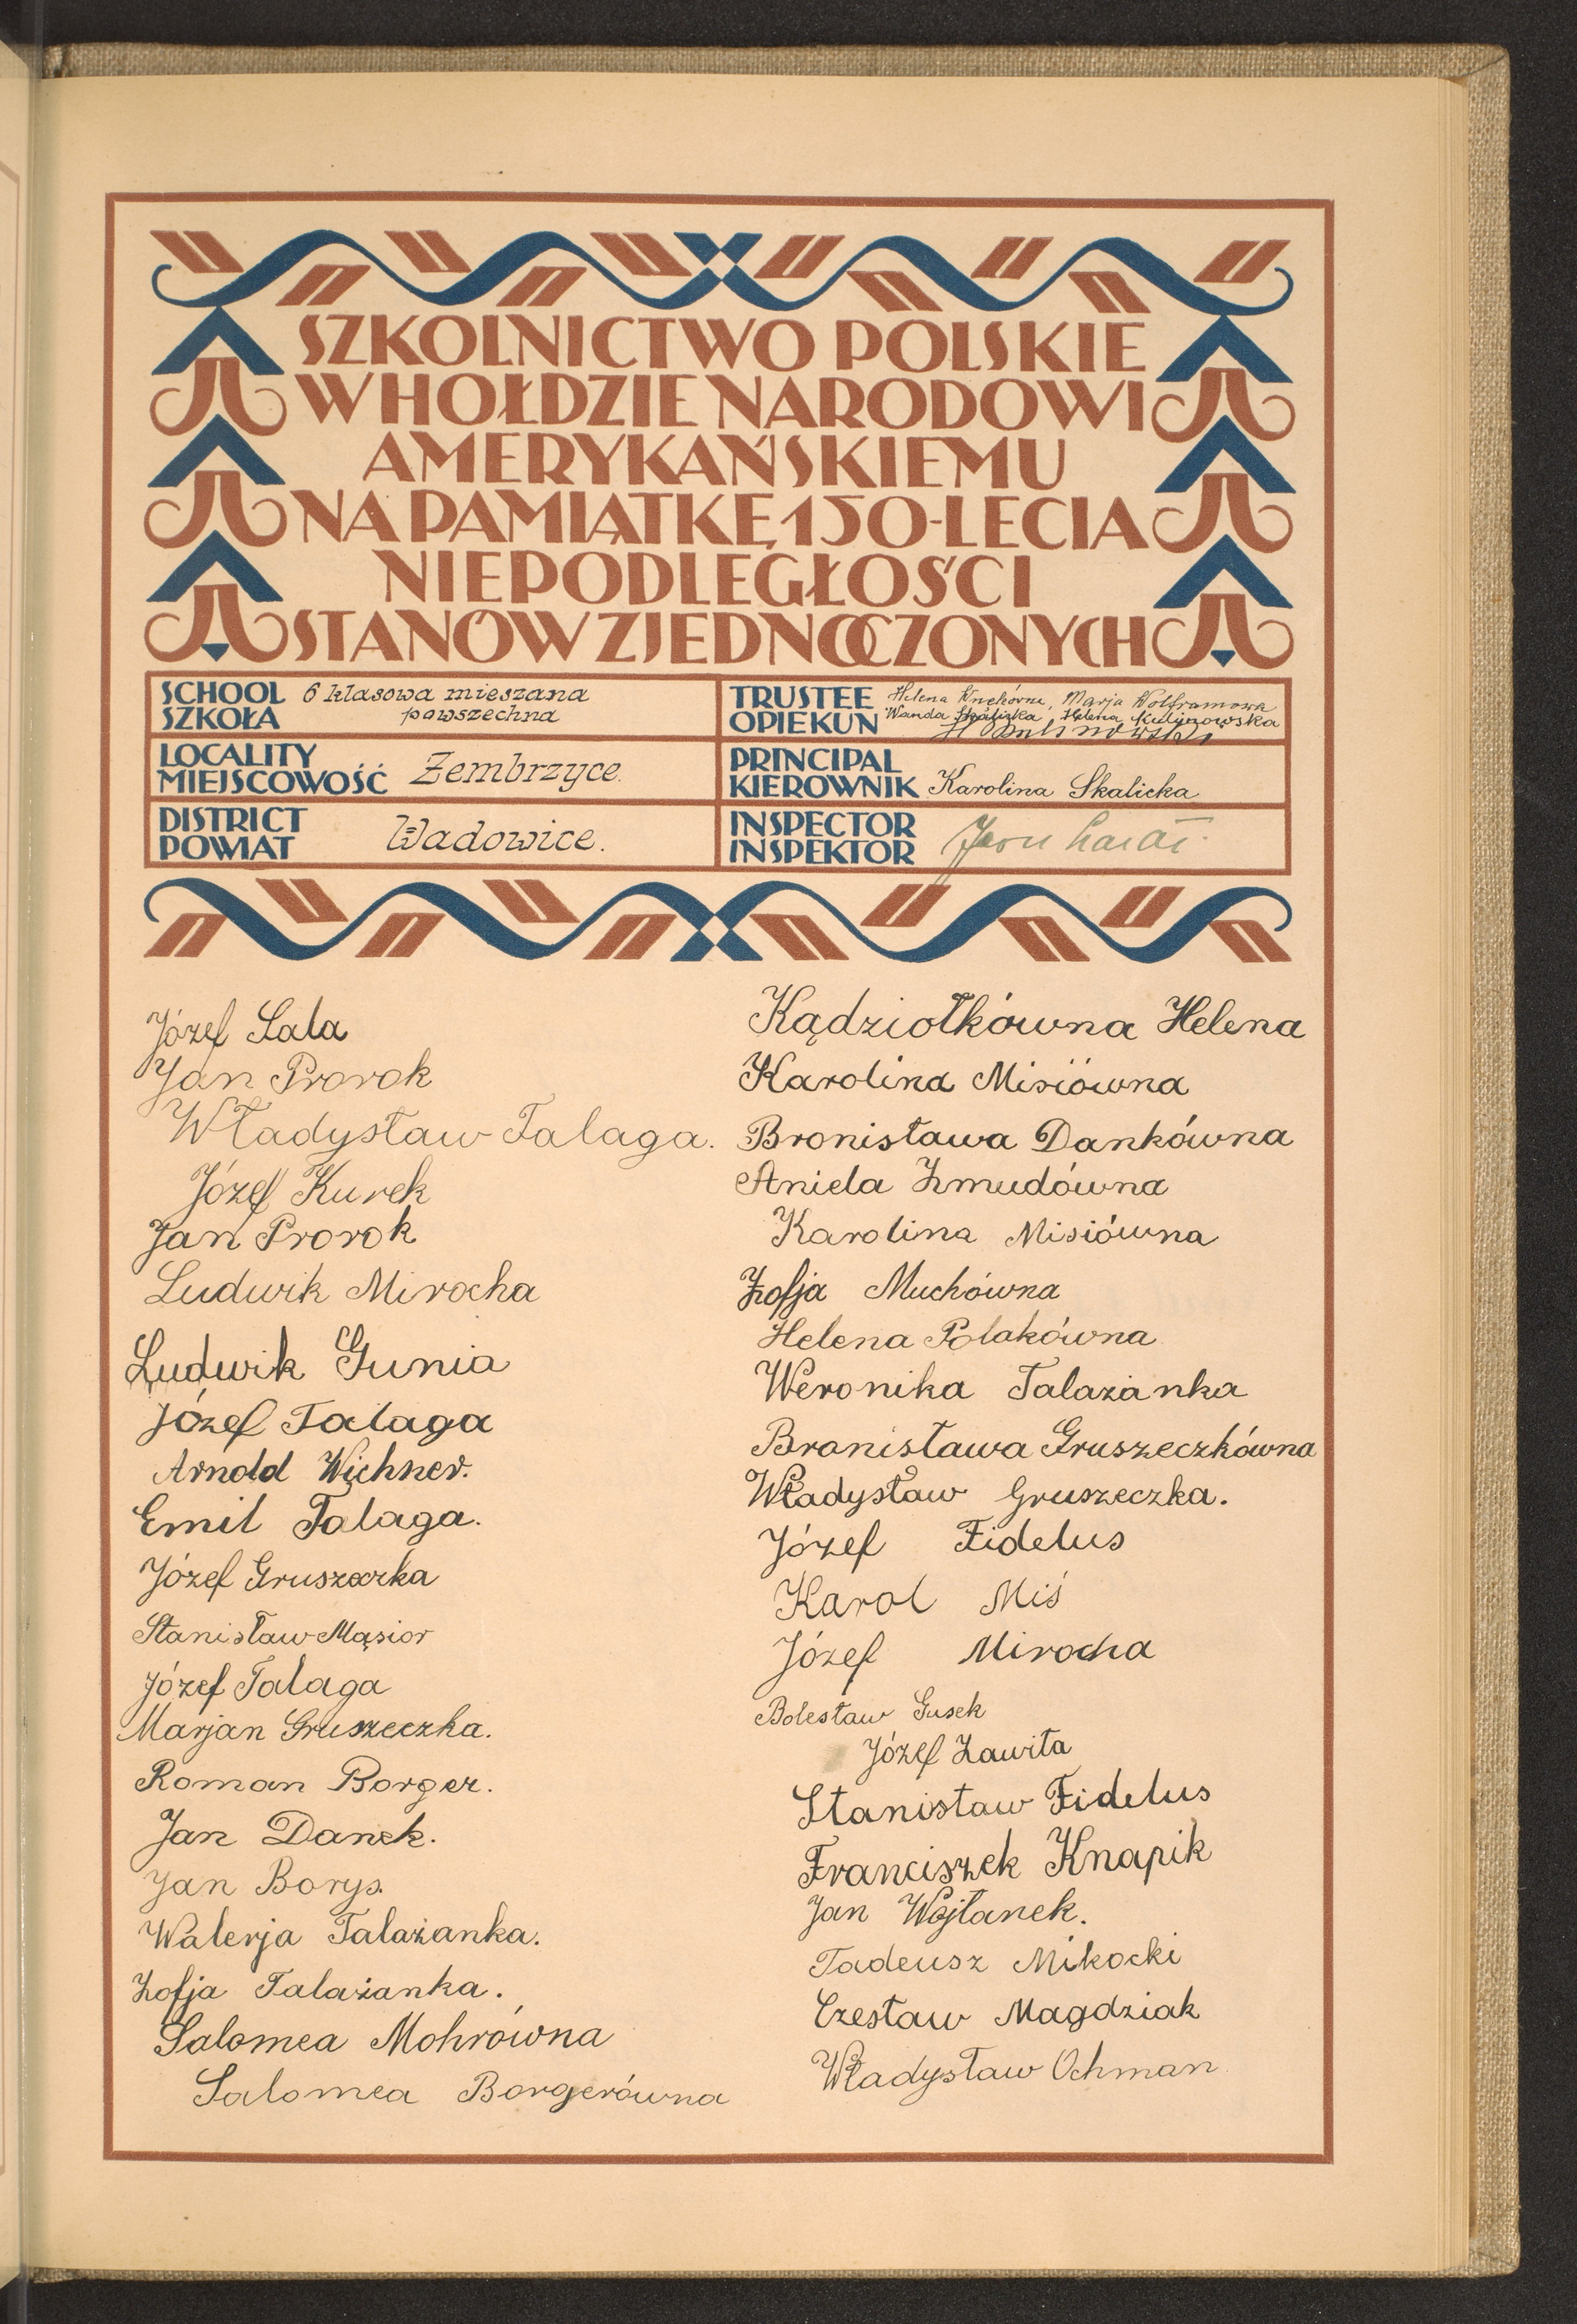 SZKOLNICTWO POLSKIE
W HOŁDZIE NARODOWI
AMERYKAŃSKIEMU
NA PAMIĄTKĘ 150-LECIA
NIEPODLEGŁOŚCI
STANÓW ZJEDNOCZONYCH
SCHOOL 6 klasowa mieszana
SZKOŁA powszechna
LOCALITY
MIEJSCOWOŚĆ Zembrzyce.
DISTRICT
POWIAT Wadowice.
TRUSTEE Helena Marja Wolframowa
OPIEKUN Wanda Helena Kulinowska
PRINCIPAL
KIEROWNIK Karolina Skalicka
INSPECTOR
INSPEKTOR
Józef Sala
Jan Prorok
Władysław Talaga.
Józef Kurek
Jan Prorok
Ludwik Mirocha
Ludwik Gunia
Józef Talaga
Arnold Wichner.
Emil Talaga.
Józef Gruszeczka
Stanisław Mąsior
Józef Talaga
Marjan Gruszeczka.
Roman Borger.
Jan Danek.
Jan Borys.
Walerja Talażanka.
Zofja Talażanka.
Salomea Mohrówna
Salomea Borgerówna
Kądziołkówna Helena
Karolina Misiówna
Bronisława Dankówna
Aniela Żmudówna
Karolina Misiówna
Zofja Muchówna
Helena Polakówna
Weronika Talażanka
Bronisława Gruszeczkówna
Władysław Gruszeczka.
Józef Fidelus
Karol Miś
Józef Mirocha
Bolesław Gusek
Józef Zawiła
Stanisław Fidelus
Franciszek Knapik
Jan Wojtanek.
Tadeusz Mikocki
Czesław Magdziak
Władysław Ochman